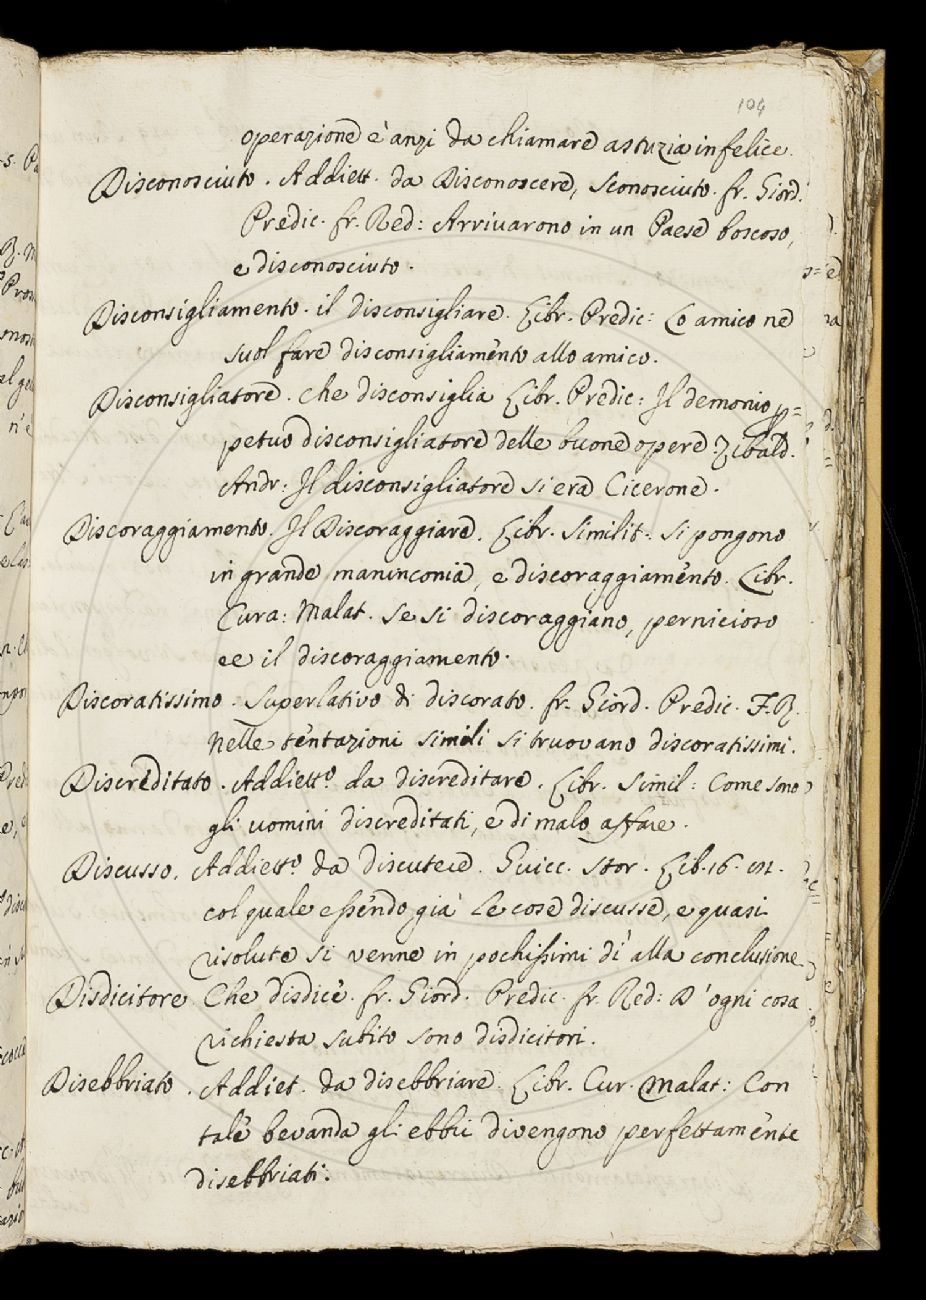 104
operazione è anzi da chiamare astuzia infelice.
Disconosciuto. Addiett. da Disconoscere, sconosciuto. fr. Giord.
Predic. fr. Red: Arrivarono in un Paese boscoso,
e disconosciuto.
Disconsigliamento. il disconsigliare. Libr. Predic: Lo amico ne
suol fare disconsigliamento allo amico.
Disconsigliatore. che disconsiglia Libr. Predic: Il demonio p=
petuo disconsigliatore delle buone opere. Zibald.
Andr: Il disconsigliatore si era Cicerone.
Discoraggiamento. Il Discoraggiare. Libr. Similit. si pongono
in grande maninconia, e discoraggiamento. Libr.
Cura: Malat. Se si discoraggiano, pernicioso
ee il discoraggiamento.
Discoratissimo. Superlativo di discorato. fr. Giord. Predic. F.R.
nelle tentazioni simili si truovano discoratissimi.
Discreditato. Addietto. da discreditare. Libr. Simil: Come sono
gli uomini discreditati, e di malo affare.
Discusso. Addietto. da discutere. Guicc. Stor. Lib. 16.
col quale essendo già le cose discusse, e quasi
risolute si venne in pochissimi dì alla conclusione
Disdicitore. Che disdice. fr. Giord. Predic. fr. Red: D'ogni cosa
richiesta subito sono disdicitori.
Disebbriato. Addiet. da disebbriare. Libr. Cur. Malat: Con
tale bevanda gli ebbri divengono perfettamente
disebbriati.